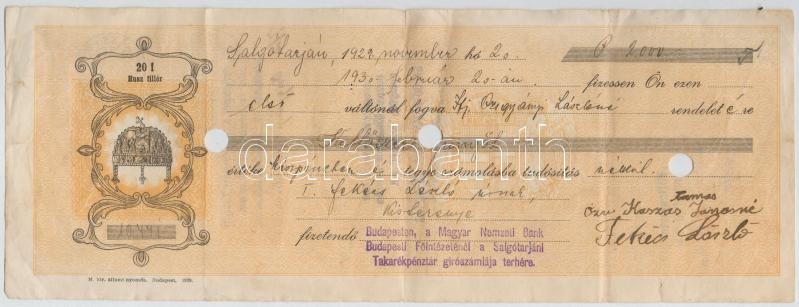 20 f
Husz fillér
Salgótarján, 1929 november hó 20.
P 2000
1930 február 20-án fizessen Ön ezen
első váltónál fogva Ifj. Lászlóné rendeletére
értéke készpénzben és tegye számolásba tudósítás nélkül.
T. Fekécs László úrnak,
Kisterenye
fizetendő
Budapesten, a Magyar Nemzeti Bank
Budapesti Főintézeténél a Salgótarjáni
Takarékpénztár girószámlája terhére.
özv. Kaszás
Fekécs László
M. kir. állami nyomda. Budapest, 1929.
darabanth